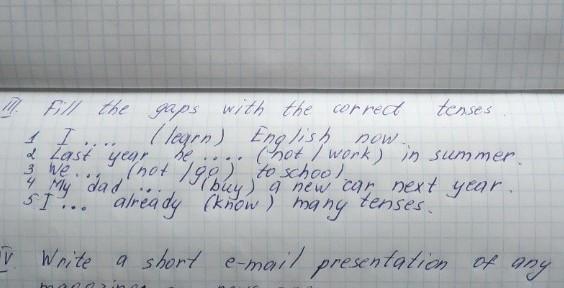 III. Fill the gaps with the correct tenses.
1 I .... (learn) English now.
2 Last year he .... (not / work) in summer.
3 We ... (not / go) to school
4 My dad .... (buy) a new car next year.
5 I ... already (know) many tenses.
IV Write a short e-mail presentation of any